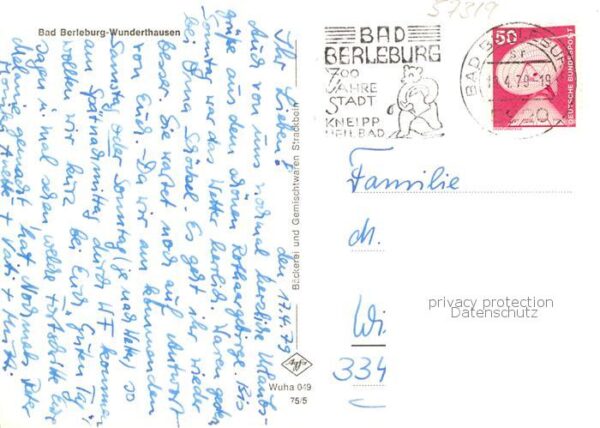 57319
Bad Berleburg-Wunderthausen
BAD
BERLEBURG
700
JAHRE
STADT
KNEIPP
HEILBAD
BAD BERLEBURG
4.79-19
50
DEUTSCHE BUNDESPOST
den 17.4.79
Ihr Lieben!
Auch von uns nochmal herzliche Urlaubs-
grüße aus dem schönen Rothaargebirge. Bis
Sonntag war das Wetter herrlich. Waren gestern
bei Oma Es geht ihr wieder
besser. Sie wartet noch auf Antwort
von Euch. Da wir am kommenden
Samstag oder Sonntag (je nach Wetter) so
am Spätnachmittag durch kommen
wollen wir kurz bei Euch "Guten Tag"
sagen u. mal sehen welche Fortschritte Eure
Melanie gemacht hat. Nochmals liebe
Anett + Vati + Mutti
Bäckerei und Gemischtwaren Strackbein
Agfa
Wuha 049
75/5
Familie
ch.
Wi
334
privacy protection
Datenschutz